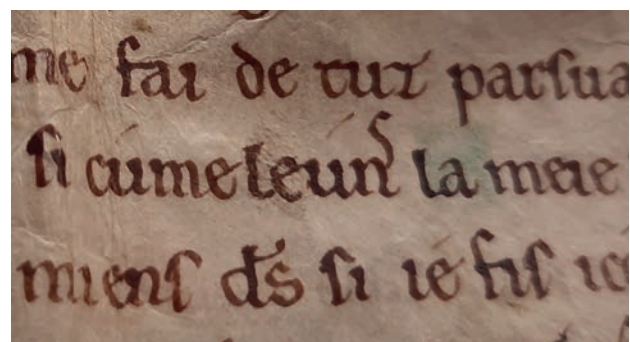 me fai de tut parſua
ſi cúme leunſ la meie
mienſ dſ̄ ſi ié fiſ ice